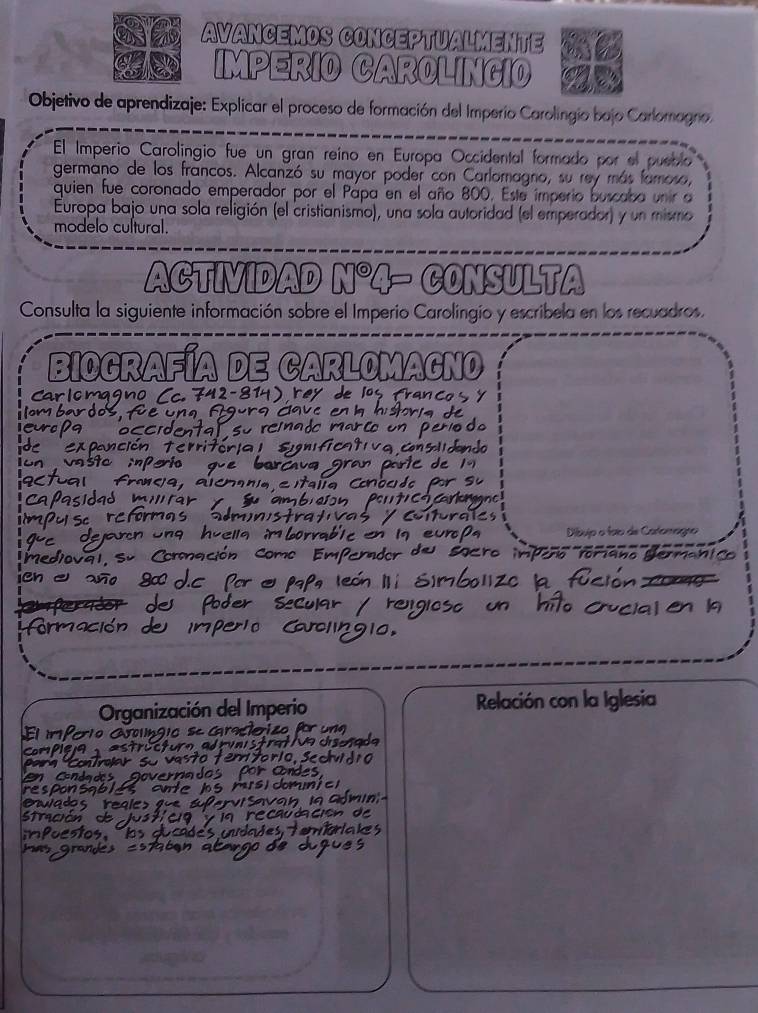 AVANCEMOS CONCEPTUALMENTE
IMPERIO CAROLINGIO
Objetivo de aprendizaje: Explicar el proceso de formación del Imperio Carolingio bajo Carlomagno.
El Imperio Carolingio fue un gran reino en Europa Occidental formado por el pueblo
germano de los francos. Alcanzó su mayor poder con Carlomagno, su rey más famoso,
quien fue coronado emperador por el Papa en el año 800. Este imperio buscaba unir a
Europa bajo una sola religión (el cristianismo), una sola autoridad (el emperador) y un mismo
modelo cultural.
ACTIVIDAD N°4- CONSULTA
Consulta la siguiente información sobre el Imperio Carolingio y escríbela en los recuadros.
BIOGRAFÍA DE CARLOMAGNO
carlomagno (c. 742-814), rey de los francos y
lombardos, fue una figura clave en la historia de
europa occidental, su reinado marco un periodo
de expanción territorial significativa, consolidando
un vasto inperio que barcava gran parte de la
actual francia, alemania, e italia conocido por su
capasidad militar y su ambicion politica, carlomagno
impulso reformas administrativas y culturales
que dejaron una huella imborrable en la europa
Dibujo o foto de Carlomagno
medioval, su Coronación como Emperador del sacro inperio romano germanico
en el año 800 d.c Por el papa león lii simbolizo la fución
del Poder Secular y religioso un hito crucial en la
formación del imperio carolingio.
Organización del Imperio
El imperio carolingio se caracterizo por una
compleja estructura administrativa diseñada
para controlar su vasto territorio, se dividio
en condades governados por condes,
responsables ante los missi dominici
enviados reales que supervisavan la admini-
stración de justicia y la recaudacion de
inpuestos, los ducados unidades, territoriales
mas grandes estaban acargo de duques
Relación con la Iglesia